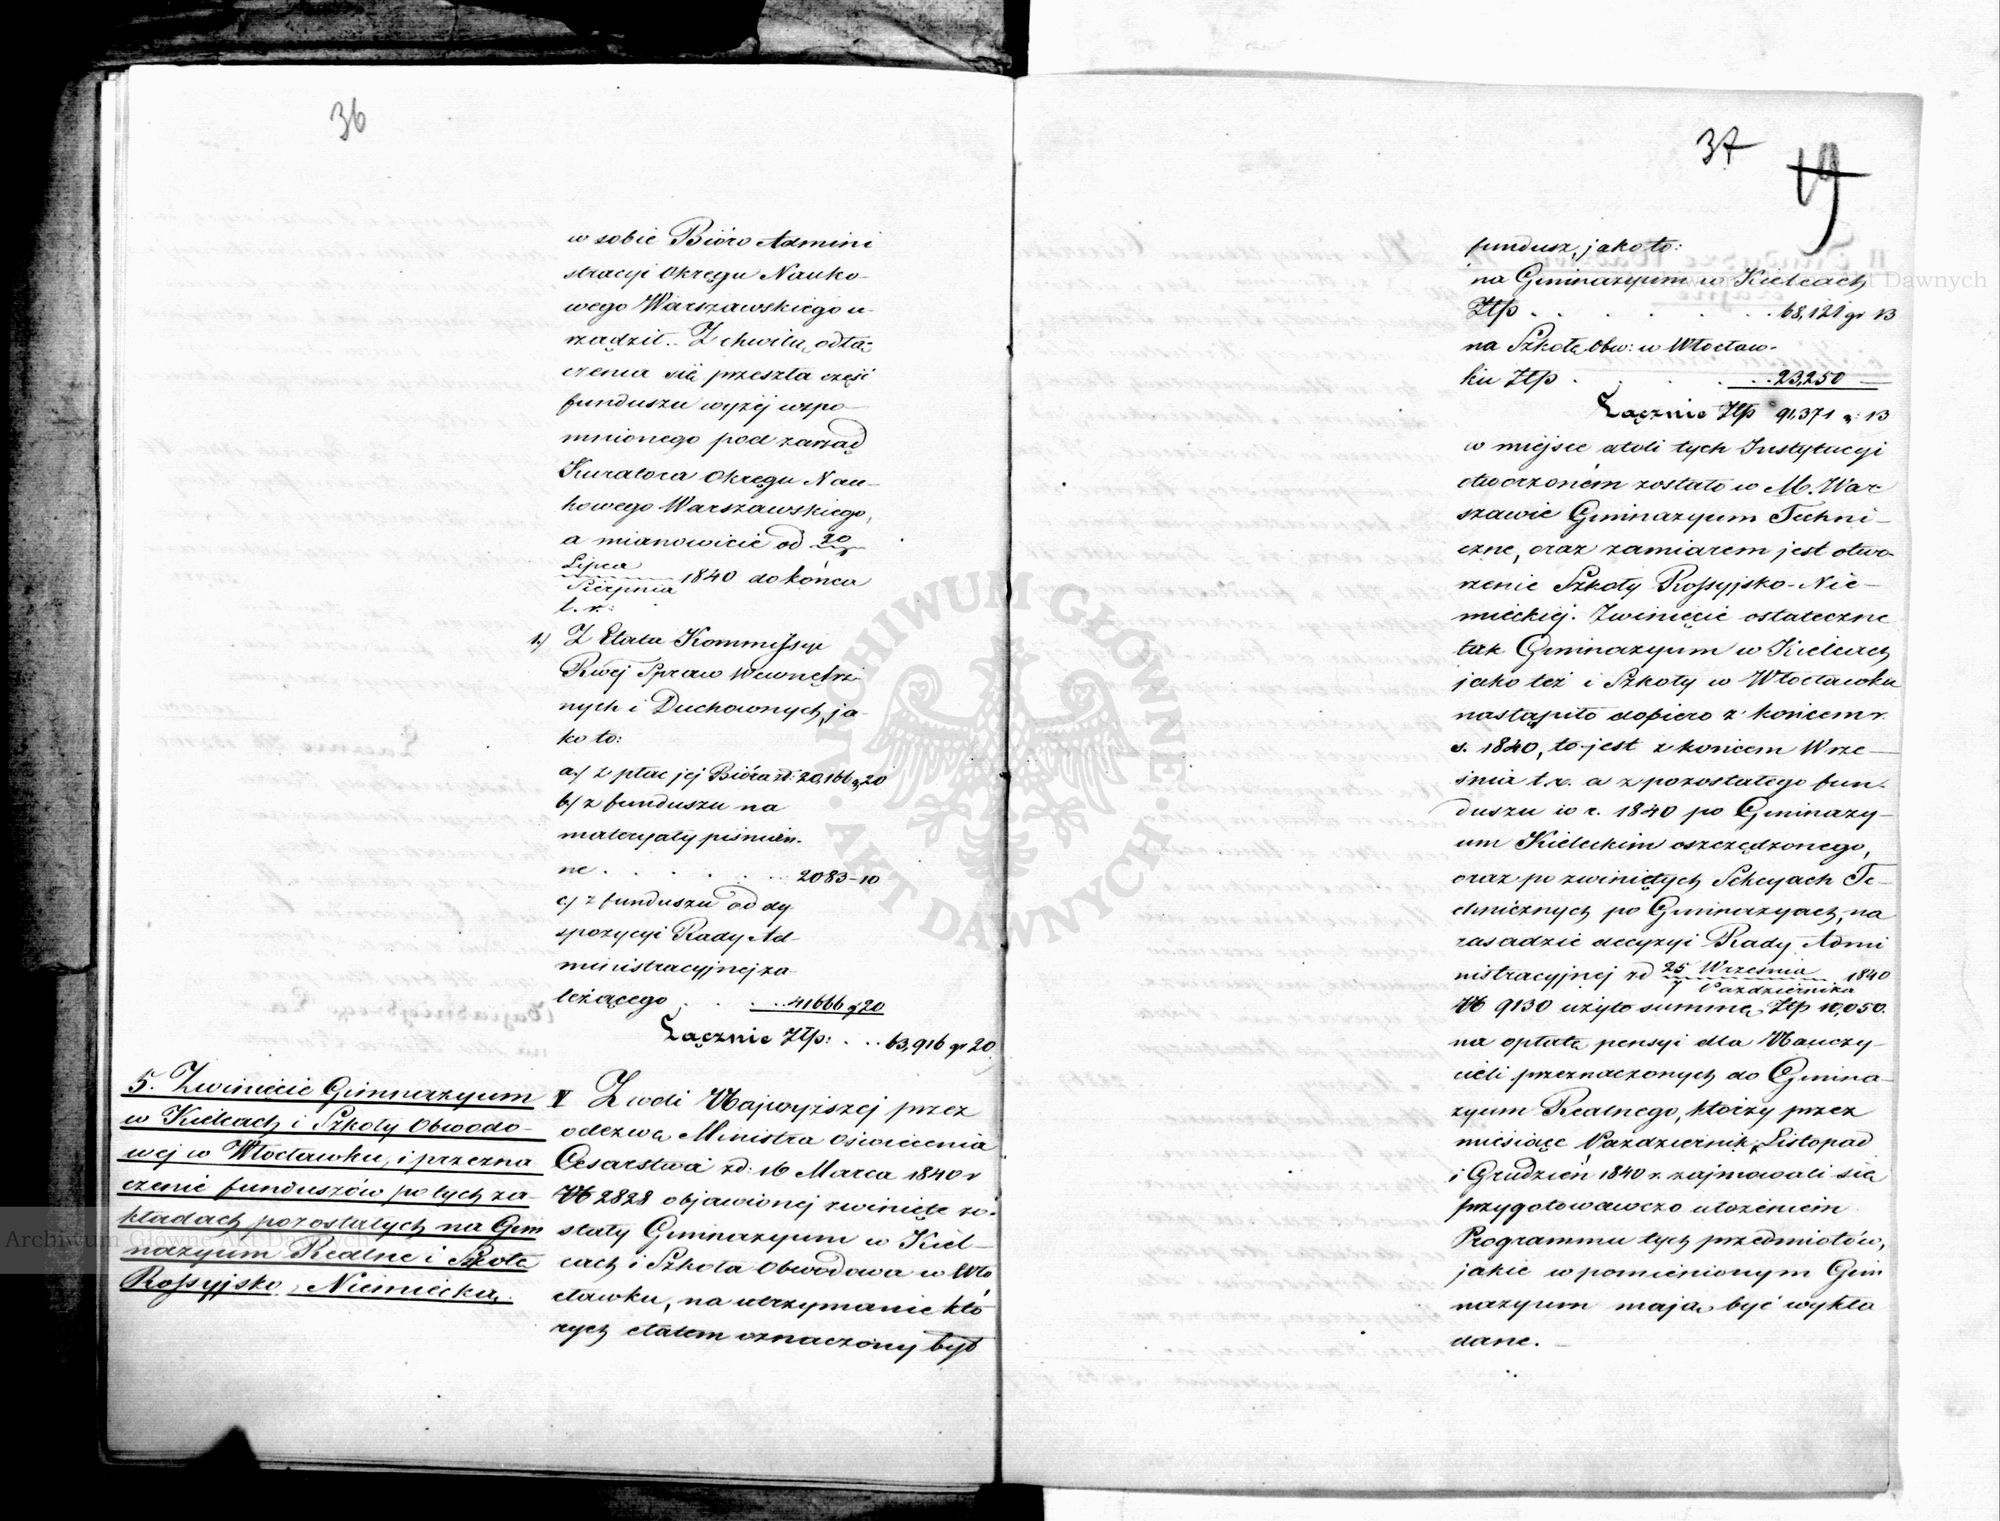 36
w sobie Bióro Admini
stracyi Okręgu Nauko-
wego Warszawskiego u-
rządzil. Z chwilą odłą-
czenia się przeszła część
funduszu wyżéj wspo-
mnionego pod zarząd
Kuratora Okręgu Nau-
kowego Warszawskiego,
a mianowicie od 20
Lipca
Sierpnia 1840 do końca
t. r:
1.) Z Etatu Kommissyi
Rwéj Spraw Wewnętrz-
nych i Duchownych, ja-
ko to:
a/ z płac jéj Bióra zł: 20,166 g 20
b/ z funduszu na
materyały piśmien-
ne . . . . . . 2083-10
c/ z funduszu od dy
spozycyi Rady Ad-
ministracyjnéj za
leżącego . . . . 41666 g 20
Łącznie Złp: . . 63,916 gr 20
5. Zwinięcie Gimnazyum
w Kielcach i Szkoły Obwodo-
wéj w Włocławku, i przezna
czenie funduszów po tych za-
kładach pozostałych na Gim
nazyum Realne i Szkołę
Rossyjsko-Niemiecką.
V Z woli Najwyższéj przez
odezwę Ministra Oświecenia
Cesarstwa zd: 16 Marca 1840 r
N 2828 objawionéj zwinięte zo-
stały Gimnazyum w Kiel-
cach i Szkoła Obwodowa w Wło
cławku, na utrzymanie któ-
rych etatem oznaczony był
37
19
fundusz, jako to:
na Gimnazyum w Kielcach
Złp . . . . . . . 68,121 gr 13
na Szkołę Obw: w Włocław-
ku Złp . . . . . . 23,250 —
Łącznie Złp 91,371 g: 13
w miejsce atoli tych Instytucyi
otworzoném zostało w M. War
szawie Gimnazyum Techni-
czne, oraz zamiarem jest otwo
rzenie Szkoły Rossyjsko-Nie-
mieckiéj. Zwinięcie ostateczne
tak Gimnazyum w Kielcach
jako też i Szkoły w Włocławku
nastąpiło dopiero z końcem r.
s. 1840, to jest z końcem Wrze-
śnia t.r. a z pozostałego fun-
duszu w r. 1840 po Gimnazy-
um Kieleckim oszczędzonego,
oraz po zwiniętych Sekcyach Te-
chnicznych po Gimnazyach, na
zasadzie decyzyi Rady Admi
nistracyjnéj zd 25 Września
7 Października 1840
N 9130 użyto summę Złp 10,050.
na opłatę pensyi dla Nauczy-
cieli przeznaczonych do Gimna-
zyum Realnego, którzy przez
miesiące Październik, Listopad
i Grudzień 1840 r. zajmowali się
przygotowawczo ułożeniem
Programmu tych przedmiotów,
jakie w pomienionym Gim
nazyum mają być wykła
dane. —
ARCHIWUM GŁÓWNE
AKT DAWNYCH
Archiwum Główne Akt Dawnych